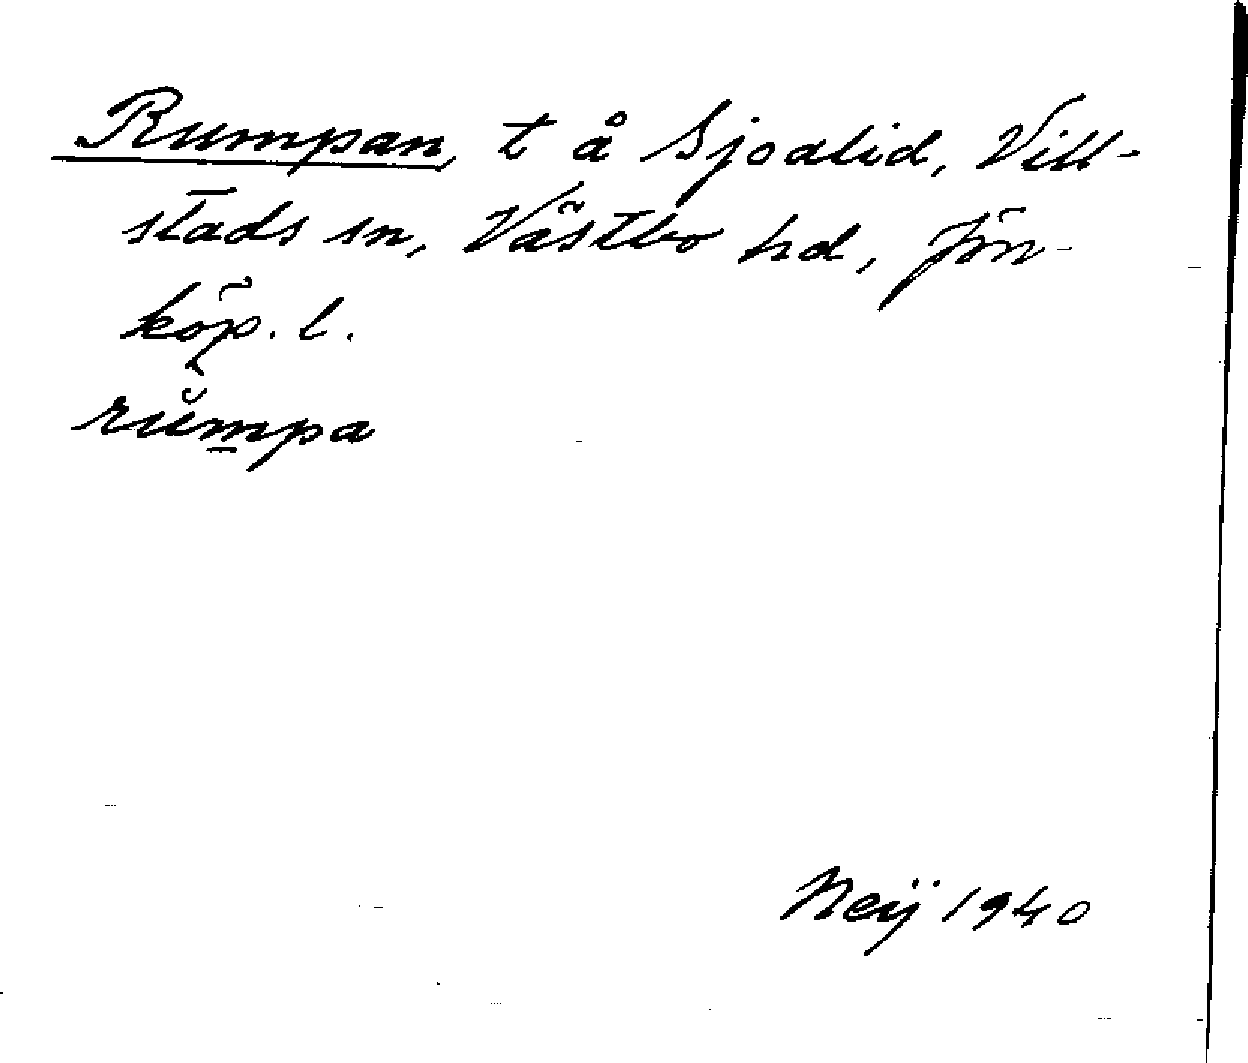 Rumpan, t å Sjoalid, Vill-
stads sn, Västbo hd, Jön-
köp. l.
rŭm̲pa
Neij 1940